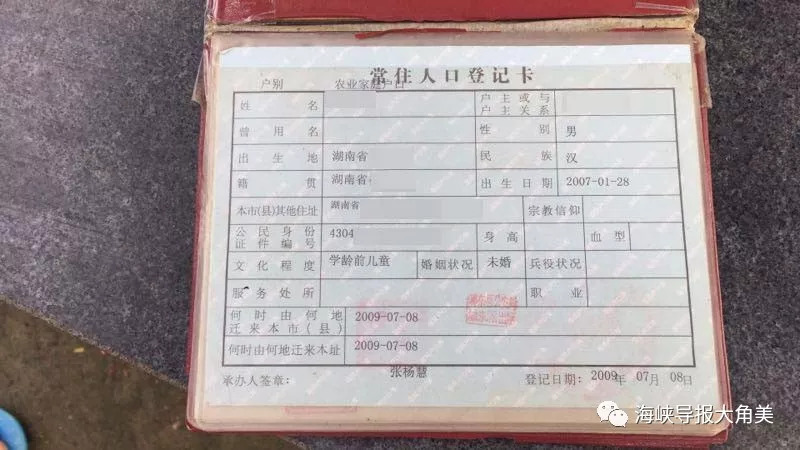 常住人口登记卡
户别 农业家庭户口
姓名 户主或与户主关系
曾用名 性别 男
出生地 湖南省 民族 汉
籍贯 湖南省 出生日期 2007-01-28
本市(县)其他住址 湖南省 宗教信仰
公民身份证件编号 4304 身高 血型
文化程度 学龄前儿童 婚姻状况 未婚 兵役状况
服务处所 职业
何时由何地迁来本市(县) 2009-07-08
何时由何地迁来本址 2009-07-08
承办人签章: 张杨慧 登记日期: 2009年 07月 08日
海峡导报大角美